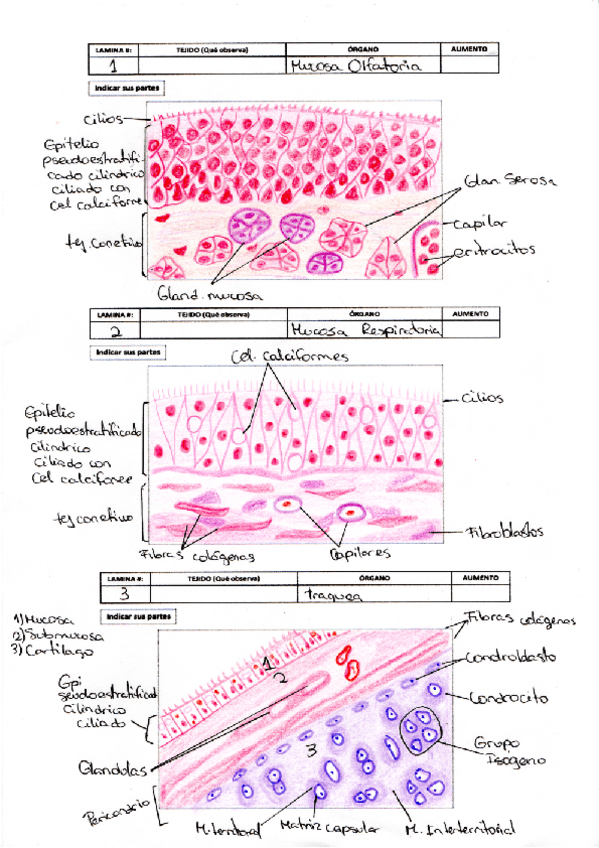 LAMINA #: TEJIDO (Qué observa) ÓRGANO AUMENTO
1 Mucosa Olfatoria
Indicar sus partes
cilios
Epitelio
pseudoestratifi-
cado cilindrico
ciliado con
cel calciforme
tej conetivo
Glan. Serosa
capilar
eritrocitos
Gland. mucosa
LAMINA #: TEJIDO (Qué observa) ÓRGANO AUMENTO
2 Mucosa Respiratoria
Indicar sus partes
Cel. calciformes
cilios
Epitelio
pseudoestratificado
cilindrico
ciliado con
cel calciforme
tej conetivo
Fibras colágenas
Capilares
Fibroblastos
LAMINA #: TEJIDO (Qué observa) ÓRGANO AUMENTO
3 traquea
Indicar sus partes
1) Mucosa
2) Submucosa
3) Cartilago
1
2
3
Fibras colágenas
Condroblasto
Condrocito
Grupo
Isogeno
Epi
seudoestratificat
Cilindrico
ciliado
Glandulas
Pericondrio
M. territorial
Matriz capsular
M. Interterritorial